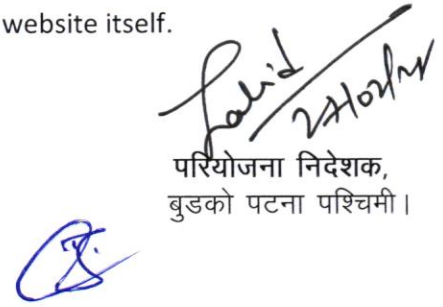 website itself.
परियोजना निदेशक,
बुडको पटना पश्चिमी।